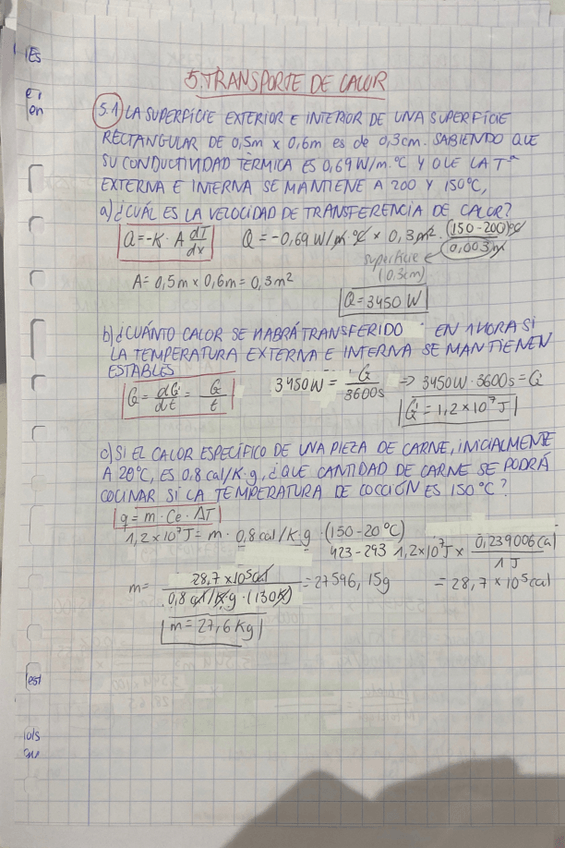 IEs
e r
on
5. TRANSPORTE DE CALOR
5.1 LA SUPERFICIE EXTERIOR E INTERIOR DE UNA SUPERFICIE
RECTANGULAR DE 0,5m x 0,6m es de 0,3cm. SABIENDO QUE
SU CONDUCTIVIDAD TÉRMICA ES 0,69 W/m·ºC Y QUE LA Tª
EXTERNA E INTERNA SE MANTIENE A 200 Y 150ºC,
a) ¿CUÁL ES LA VELOCIDAD DE TRANSFERENCIA DE CALOR?
Q = -K · A dT/dx Q = -0,69 W/m ºC x 0,3 m² · (150-200)ºC / 0,003m
superficie
(0,3cm)
A = 0,5m x 0,6m = 0,3m²
Q = 3450 W
b) ¿CUÁNTO CALOR SE HABRÁ TRANSFERIDO EN 1 HORA SI
LA TEMPERATURA EXTERNA E INTERNA SE MANTIENEN
ESTABLES
Q̇ = dQ/dt = Q/t 3450W = Q/3600s => 3450W · 3600s = Q
Q = 1,2 x 10⁷ J
c) SI EL CALOR ESPECÍFICO DE UNA PIEZA DE CARNE, INICIALMENTE
A 20ºC, ES 0,8 cal/K·g, ¿QUE CANTIDAD DE CARNE SE PODRÁ
COCINAR SI LA TEMPERATURA DE COCCIÓN ES 150ºC?
q = m · Ce · ΔT
1,2 x 10⁷ J = m · 0,8 cal/K·g · (150-20ºC)
423-293 1,2x10⁷J x 0,239006 cal / 1 J
m = 28,7 x 10⁵ cal / 0,8 cal/K·g · (130K) = 27596,15g = 28,7 x 10⁵ cal
m = 27,6 Kg
est